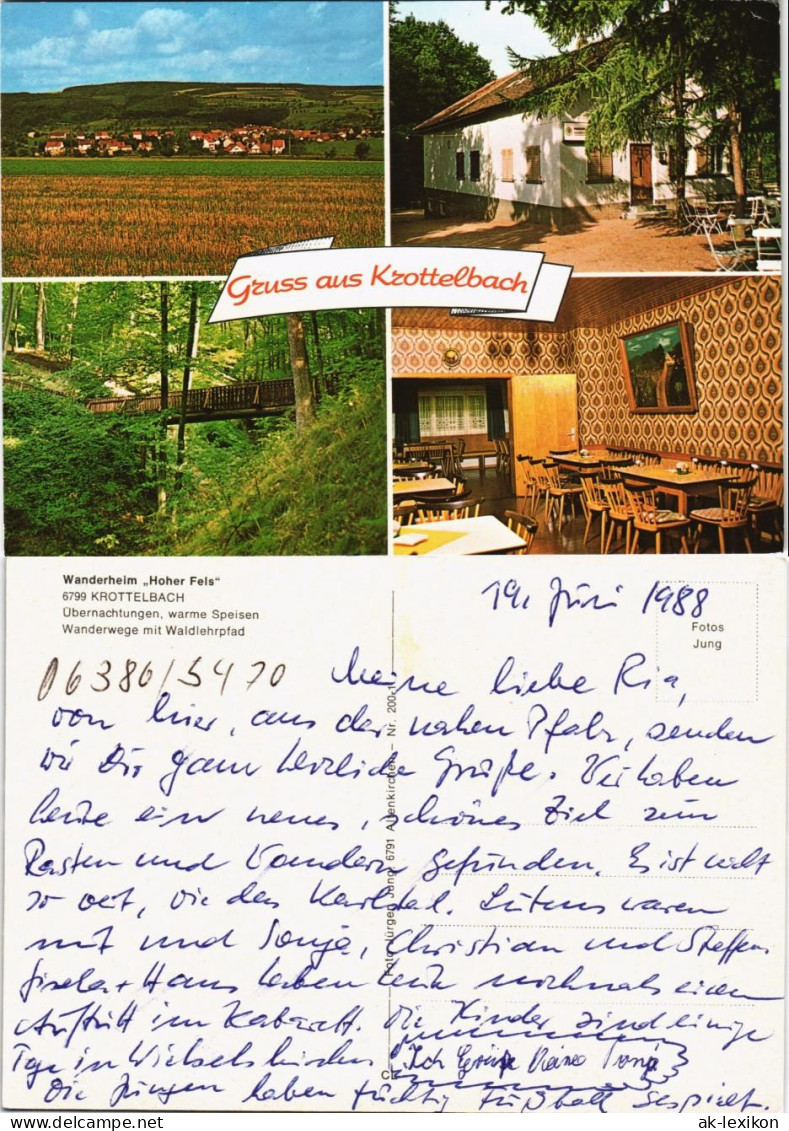 Gruss aus Krottelbach
Wanderheim „Hoher Fels"
6799 KROTTELBACH
Übernachtungen, warme Speisen
Wanderwege mit Waldlehrpfad
19. Juni 1988
Fotos
Jung
06386/5470
Meine liebe Ria,
von hier, aus der nahen Pfalz, senden
wir Dir ganz herzliche Grüße. Wir haben
heute ein neues, schönes Ziel zum
Rasten und Wandern gefunden. Es ist nicht
so weit, wie das Karlstal. waren
mit und Sonja, Christian und Steffen.
Gisela + Hans haben heute nochmals einen
Auftritt im Kabarett. Die Kinder sind einige
Tage in
Ich Grüße
Die Jungen haben tüchtig Fußball gespielt.
Foto: Jürgen Jung, 6791 Altenkirchen – Nr. 200-1
ak-lexikon